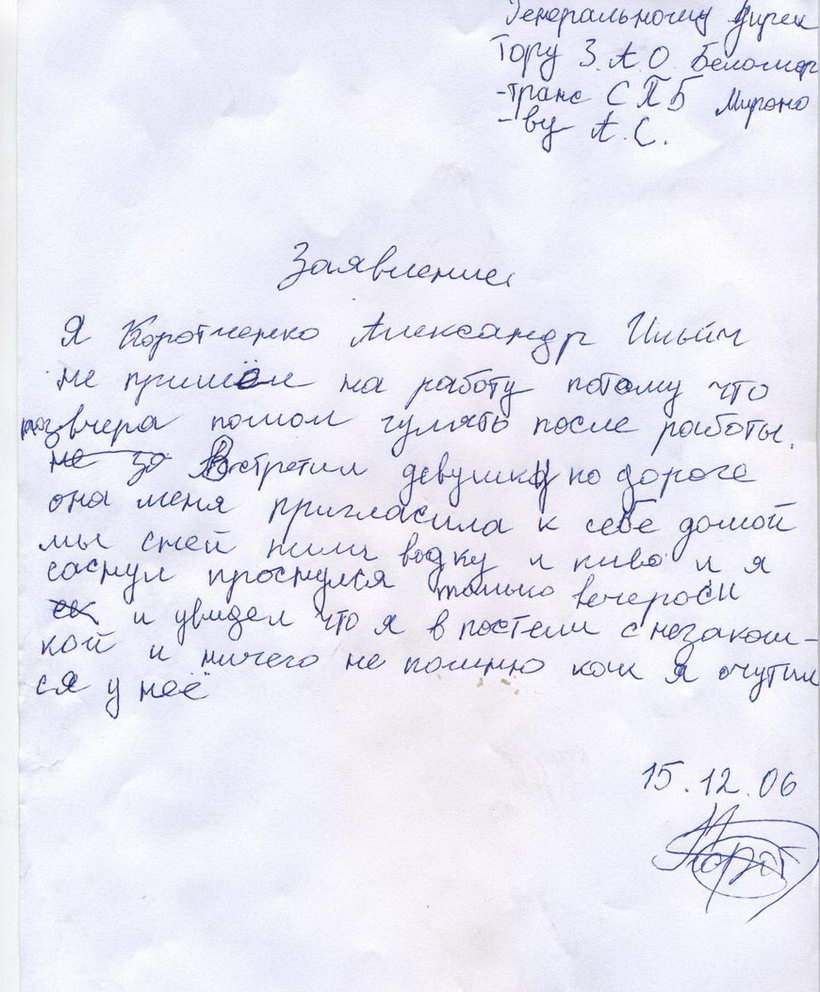 Генеральному дирек
тору З.А.О. Беломор
-транс СПБ Мироно
-ву А.С.
Заявление
Я Коротченко Александр Ильич
не пришёл на работу потому что
вчера пошол гулять после работы.
не за Встретил девушку по дороге
она меня пригласила к себе домой
мы сней пили водку и пиво и я
заснул проснулся только вечером
и увидел что я в постели с незаком-
кой и ничего не помню как я очутил
ся у неё
15.12.06
Корот